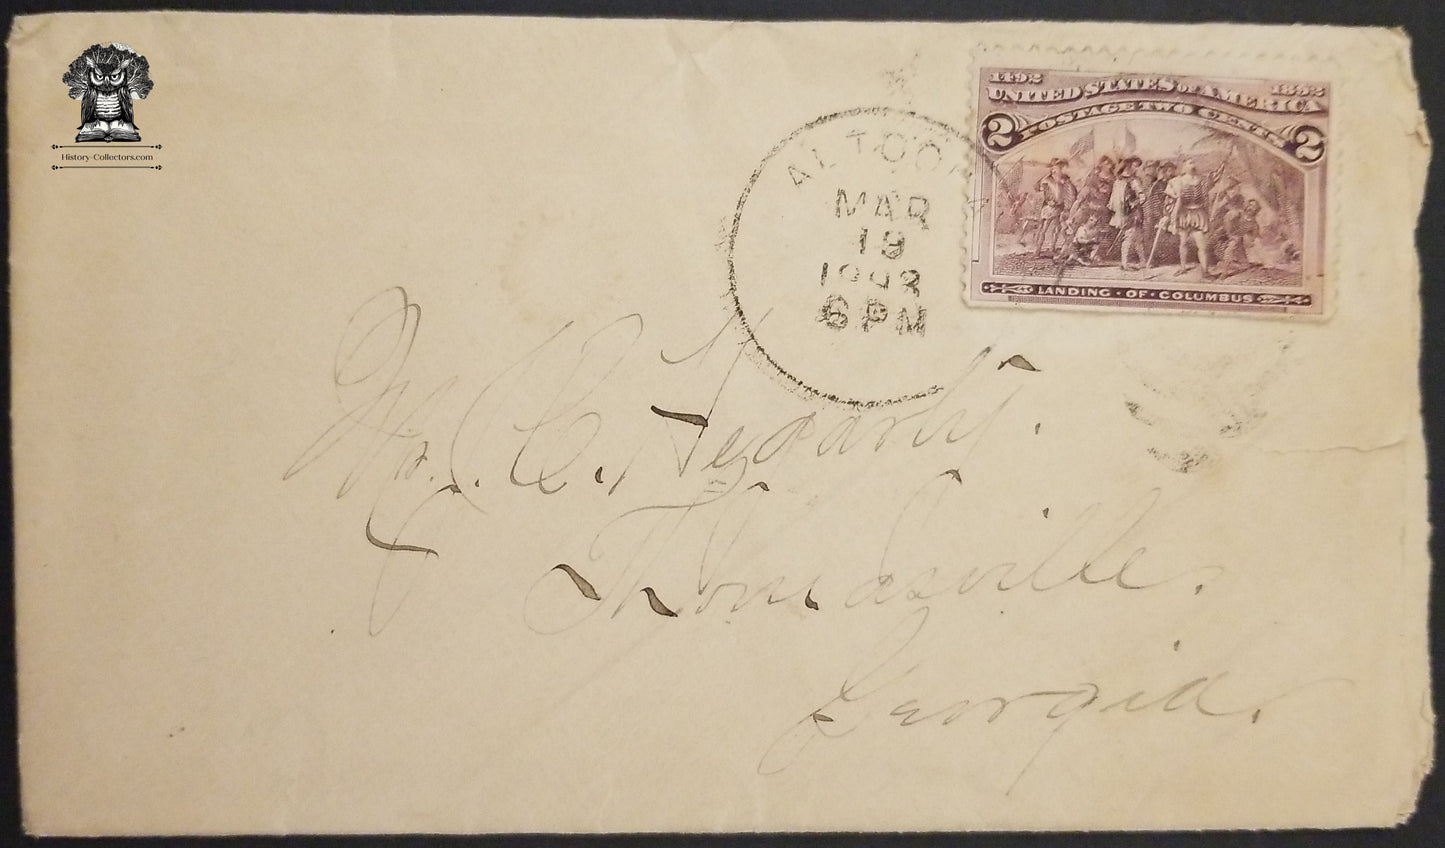 History-Collectors.com
1492 1892
UNITED STATES OF AMERICA
POSTAGE TWO CENTS
2 2
LANDING · OF · COLUMBUS
ALTOONA
MAR
19
1893
6 PM
Mr. C. Hegarty.
Thomasville.
Georgia.